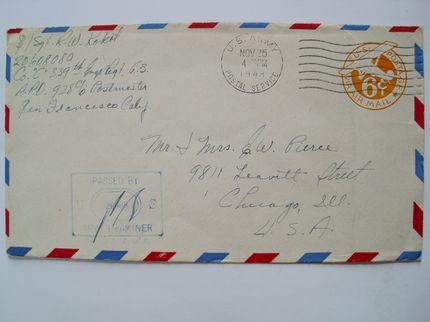 S/Sgt. R. W.
20608080
Co. C - 339th Engr Regt. G.S.
A.P.O. 928 c/o Postmaster
San Francisco Calif.
U.S. ARMY
NOV 25
4 PM
POSTAL SERVICE
U.S. POSTAGE
6¢
AIR MAIL
Mr. & Mrs. J. W. Pierce
9811 Leavitt Street
Chicago, Ill.
U. S. A.
PASSED BY
U S
ARMY EXAMINER